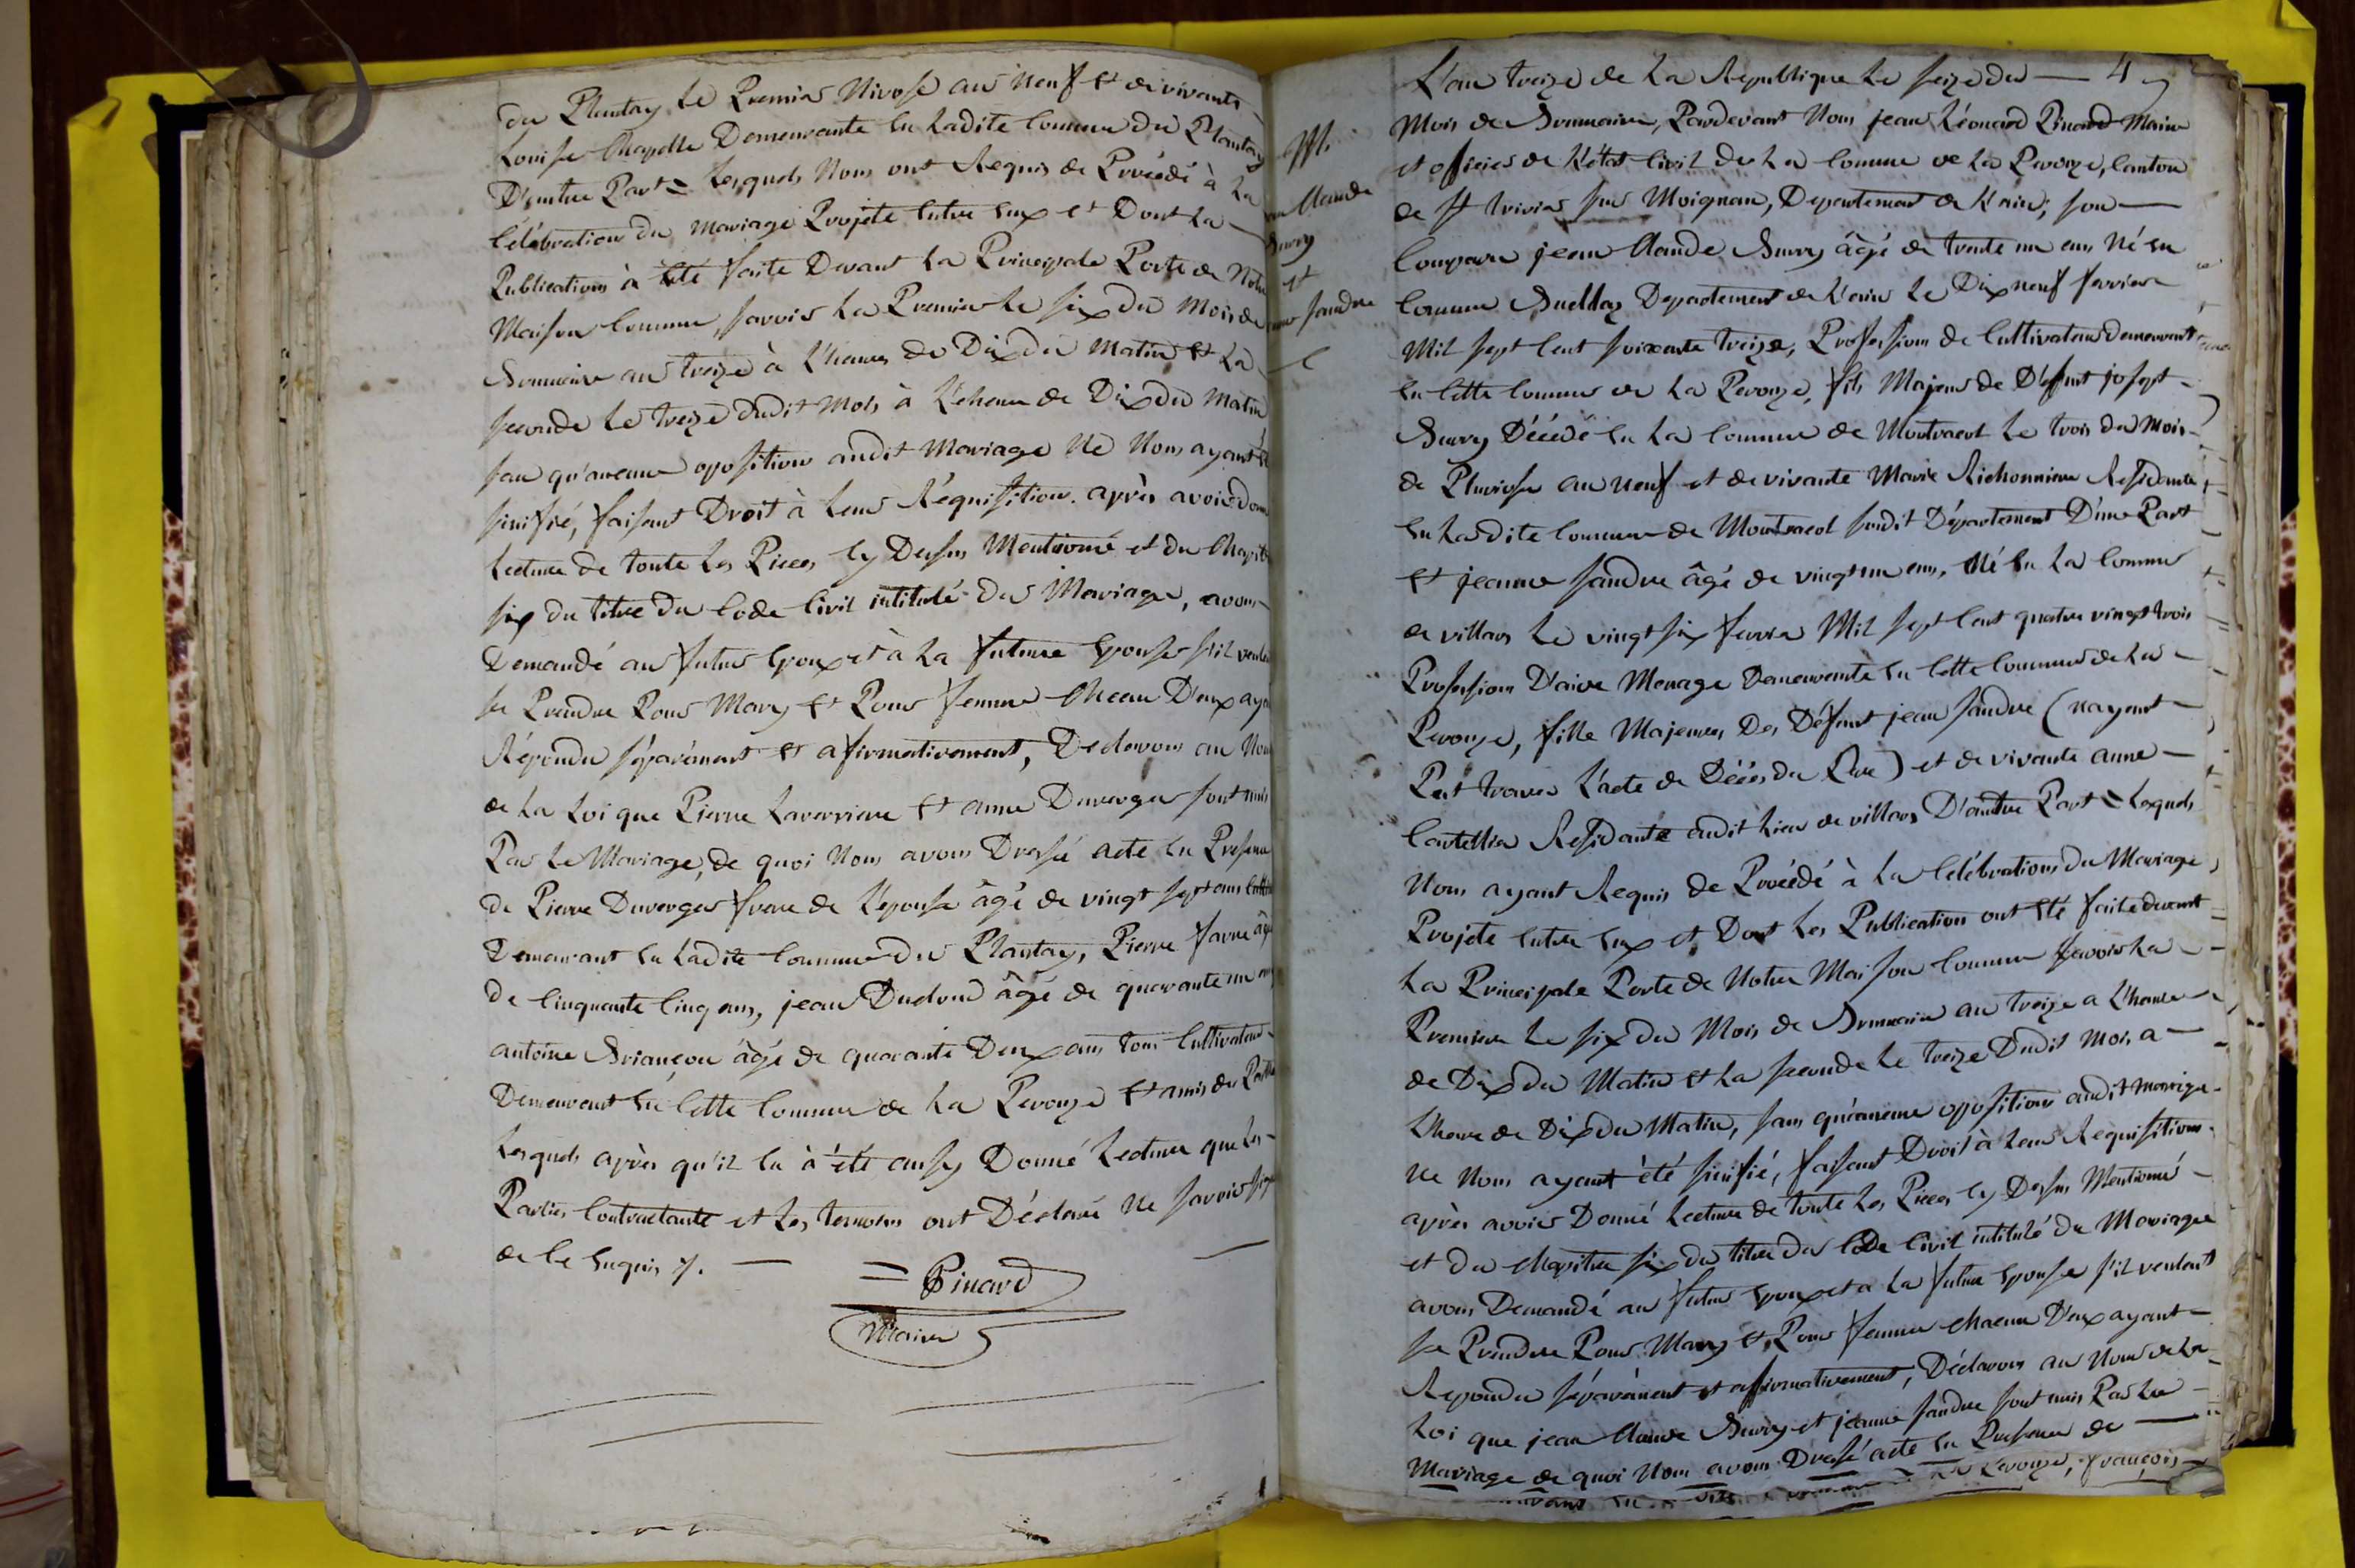 du Plantay le Premier Nivose an neuf et de vivante
Louise Chapelle Demeurante en Ladite Commune du Plantay
D'autre Part = Lesquels Nous ont Requis de Procédé à La
Célébration du mariage Projeté Entre Eux et Dont La
Publication à été faite Devant La Principale Porte de Notre
Maison Commune, savoir La Premier Le six du Mois de
Brumaire an treize à L'heure de Dix du Matin et La
seconde Le treize dudit Mois à L'eheure de Dix du Matin
san qu'aucune oposition audit Mariage Ne Nous ayant
sinifié, faisant Droit à Leur Réquisition. après avoir don
Lecture de toute Les Pieces Cy Dessus Mentionné et du Chapitre
six du titre du Code Civil intitulé du Mariage, avons
Demandé au futur Epoux et à La future Epouse s'il veule
se Prendre Pour Mary et Pour femme Chacun D'eux aya
Répondu séparément et afirmativement, Declarons au Nom
de La Loi que Pierre Laverriere et anne Duverger sont unis
Par Le Mariage, de quoi Nous avons Dressé acte En Presence
de Pierre Duverger frere de L'epouse âgé de vingt sept ans
Demeurant En Ladite Commune du Plantay, Pierre favre âgé
de Cinquante Cinq ans, jean Dudond âgé de quarante un
antoine Briançon âgé de quarante Deux ans tous Cultivateur
Demeurant En Cette Commune de La Perouze et amis de
Lesquels après qu'il En à été aussy Donné Lecture que Les
Parties Contractante et Les temoins ont Déclaré Ne savoir
de Ce Enquis /.
= Pinard
Maire
M
Claude
Burry
et
sandre
L'an treize de La Republique Le seize du 4
Mois de Brumaire, Pardevant Nous jean Léonard Pinard Maire
et officier de L'état Civil de La Commune de La Perouze, Canton
de St trivier sur Moignan, Departement de L'ain, son
Comparu jean Claude Burry âgé de trente un ans Né En
Commune Buellas Departement de L'ain Le Dix neuf fevriere
Mil sept Cent soixante treize, Profession de Cultivateur demeurant
En Cette Commune de La Perouze, fils Majeur de Défunt joseph
Burry Décédé En La Commune de Montracol Le trois du Mois
de Pluviose an neuf et de vivante Marie Richonniere Residante
En Ladite Commune de Montracol susdit Département D'une Part
et jeanne sandre âgé de vingt un ans, Né En La Commune
de villars Le vingt six fevrier Mil sept Cent quatre vingt trois
Profession D'aive Menage Demeurante En Cette Commune de La
Perouze, fille Majeures Des Défunt jean sandre (nayant
Peut trouver L'acte de Décés du Pere) et de vivante anne
Cartellier Residante audit Lieu de villars D'autre Part = Lesquels
Nous ayant Requis de Procédé à La Célébrations du Mariage
Projeté Entre Eux et Dont Les Publication ont été faite devant
La Principale Porte de Notre Maison Commune savoir La
Premiere Le six du Mois de Brumaire an treize a L'heure
de Dix du Matin et La seconde Le treize Dudit Mois a
L'heure de Dix du Matin, sans qu'aucune opposition audit mariage
Ne Nous ayant été sinifié, faisant Droit à Leur Requisition
après avoir Donné Lecture de toute Les Pieces Cy Dessus Mentionné
et du Chapitre six du titre du Code Civil intitulé du Mariage
avons Demandé au futur Epoux et a La future Epouse s'il veulent
se Prendre Pour Mary et Pour femme Chacun D'eux ayant
Repondu séparément et affirmativement, Déclarons au Nom de La
Loi que jean Claude Burry et jeanne sandre sont unis Par Le
Mariage de quoi Nous avons Dressé acte En Presence de
Perouze, françois